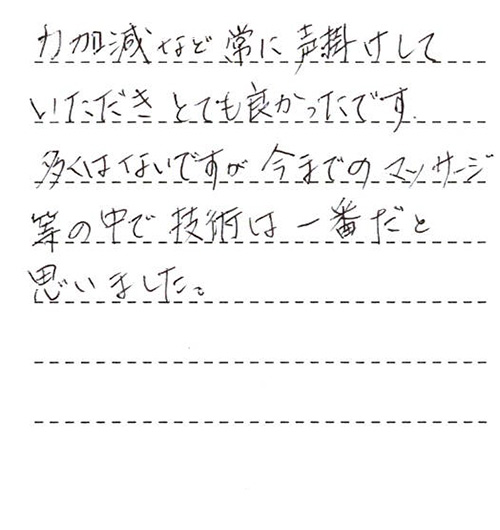 力加減など常に声掛けして
いただきとても良かったです.
多くはないですが今までのマッサージ
等の中で技術は一番だと
思いました。